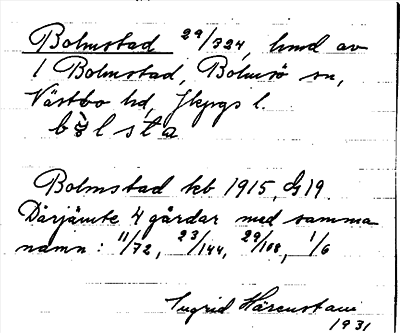 Bolmstad 29/324, hmd av
1 Bolmstad, Bolmsö sn,
Västbo hd, Jkpgs l.
Bolmstad kb 1915, G19.
Därjämte 4 gårdar med samma
namn: 11/72, 23/144, 29/108, 1/6
Ingrid
1931